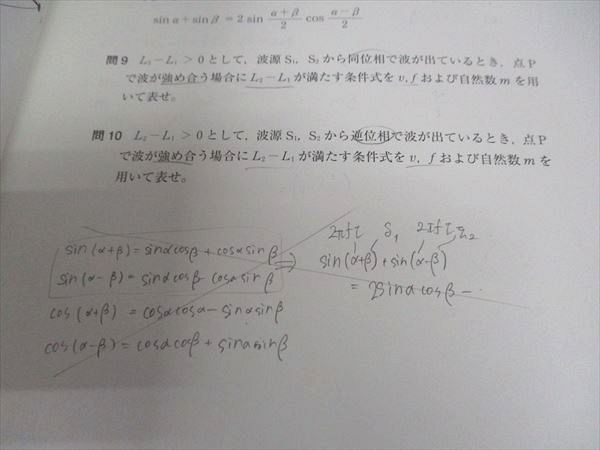 sin α + sin β = 2 sin (α+β)/2 cos (α−β)/2
問9 L₂−L₁＞0として，波源S₁，S₂から同位相で波が出ているとき，点P
で波が強め合う場合にL₂−L₁が満たす条件式をv, fおよび自然数mを用
いて表せ。
問10 L₂−L₁＞0として，波源S₁，S₂から逆位相で波が出ているとき，点P
で波が強め合う場合にL₂−L₁が満たす条件式をv, fおよび自然数mを
用いて表せ。
sin(α+β)=sinαcosβ+cosαsinβ
sin(α−β)=sinαcosβ−cosαsinβ
cos(α+β)=cosαcosα−sinαsinβ
cos(α−β)=cosαcosβ+sinαsinβ
2πft δ₁ 2πft
⇒ sin(α+β)+sin(α−β)
= 2sinαcosβ −